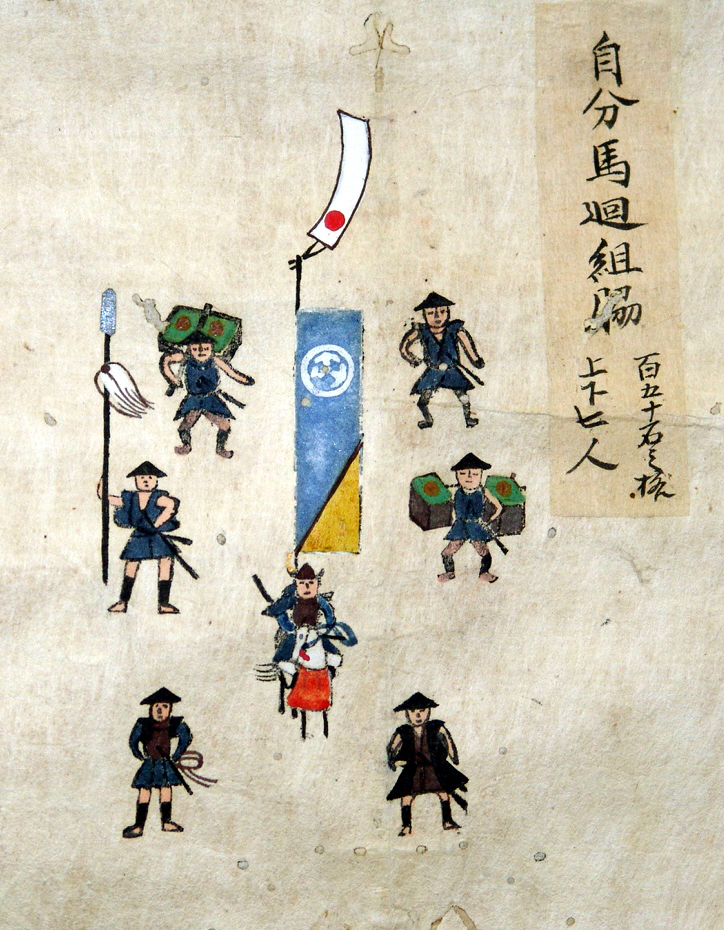 自分馬廻組脇
百五十石之格
上下七人